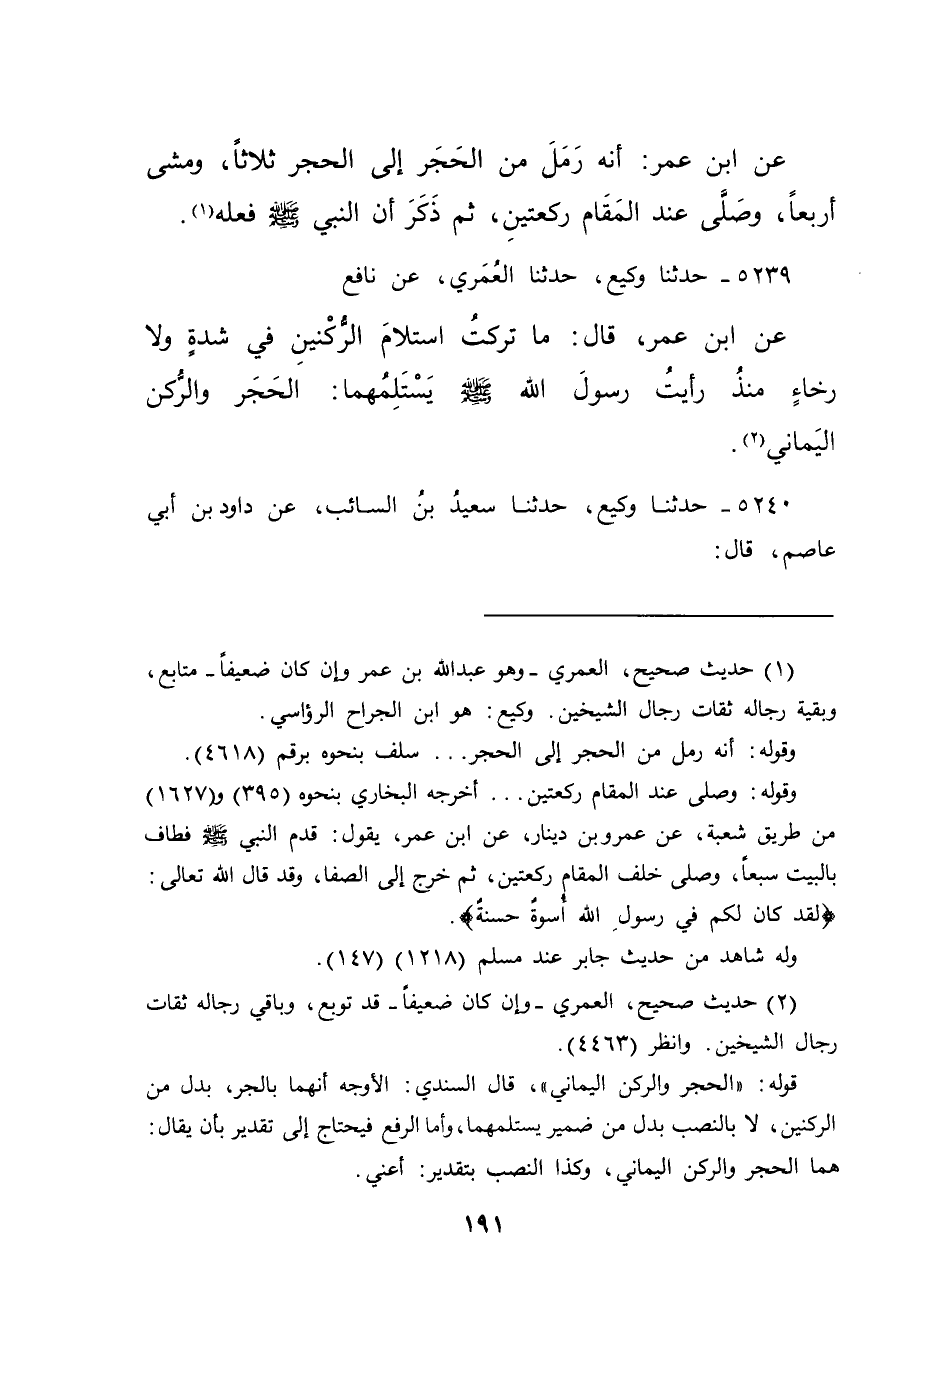 عن ابن عمر: أنه رَمَلَ من الحَجَر إلى الحجر ثلاثاً، ومشى
أربعاً، وصَلَّى عند المَقَام ركعتينِ، ثم ذَكَرَ أن النبي ﷺ فعله(١).
٥٢٣٩ ـ حدثنا وكيع، حدثنا العُمَري، عن نافع
عن ابن عمر، قال: ما تركتُ استلامَ الرُّكْنينِ في شدةٍ ولا
رخاءٍ منذُ رأيتُ رسولَ الله ﷺ يَسْتَلِمُهما: الحَجَر والرُّكن
اليَماني(٢).
٥٢٤٠ ـ حدثنا وكيع، حدثنا سعيدُ بنُ السائب، عن داود بن أبي
عاصم، قال:
(١) حديث صحيح، العمري ـ وهو عبدالله بن عمر وإن كان ضعيفاً ـ متابع،
وبقية رجاله ثقات رجال الشيخين. وكيع: هو ابن الجراح الرؤاسي.
وقوله: أنه رمل من الحجر إلى الحجر... سلف بنحوه برقم (٤٦١٨).
وقوله: وصلى عند المقام ركعتين... أخرجه البخاري بنحوه (٣٩٥) و(١٦٢٧)
من طريق شعبة، عن عمرو بن دينار، عن ابن عمر، يقول: قدم النبي ﷺ فطاف
بالبيت سبعاً، وصلى خلف المقام ركعتين، ثم خرج إلى الصفا، وقد قال الله تعالى:
﴿لقد كان لكم في رسولِ الله أُسوةٌ حسنةٌ﴾.
وله شاهد من حديث جابر عند مسلم (١٢١٨) (١٤٧).
(٢) حديث صحيح، العمري ـ وإن كان ضعيفاً ـ قد توبع، وباقي رجاله ثقات
رجال الشيخين. وانظر (٤٤٦٣).
قوله: «الحجر والركن اليماني»، قال السندي: الأوجه أنهما بالجر، بدل من
الركنين، لا بالنصب بدل من ضمير يستلمهما، وأما الرفع فيحتاج إلى تقدير بأن يقال:
هما الحجر والركن اليماني، وكذا النصب بتقدير: أعني.
١٩١